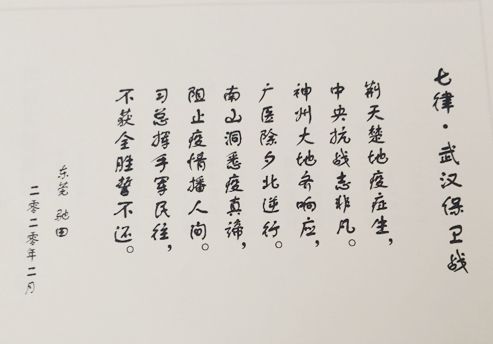 七律·武汉保卫战
荆天楚地疫症生，
中央抗战志非凡。
神州大地齐响应，
广医除夕北逆行。
南山洞悉疫真谛，
阻止疫情播人间。
习总挥手军民往，
不获全胜誓不还。
东莞 驰田
二零二零年二月